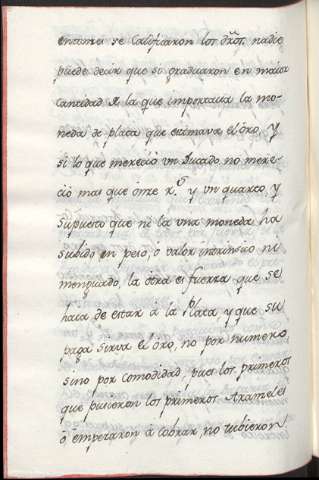 entonces se Calificaron los dr̃os, nadie
puede decir que se graduaron en maior
Cantidad de la que importaua la mo-
neda de plata que estimaua el oro, y
si lo que mereció vn Ducado, no mere-
ció mas que onze r.ˢ y vn quarto, y
supuesto que ni la vna moneda ha
subido en peso, o valor intrinseco ni
menguado, la otra es fuerza que se
haia de estar à la Plata y que su
paga sirva el oro, no por numero,
sino por comodidad, pues los primeros
que pusieron los primeros Aranzeles
ò empezaron à cobrar, no tubieron